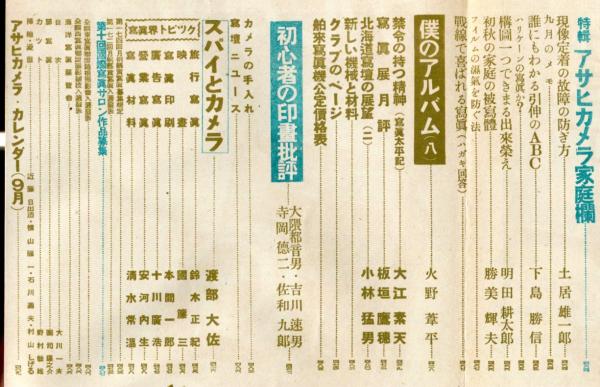 特輯 アサヒカメラ家庭欄
現像定着の故障の防ぎ方
土居雄一郎
九月のメモ
誰にもわかる引伸のABC
下島勝信
ハリケーンの寫眞か？
構圖一つできまる出來榮え
明田耕太郎
初秋の家庭の被寫體
勝美輝夫
フィルムの濕氣を防ぐ法
戰線で喜ばれる寫眞（ハガキ回答）
僕のアルバム（八）
火野葦平
禁令の持つ精神（寫眞太平記）
大江素天
寫眞展月評
板垣鷹穗
北海道寫壇の展望（二）
小林猛男
新しい機械と材料
クラブのページ
舶來寫眞機公定價格表
初心者の印畫批評
大隈都音男・吉川速男
寺岡德二・佐和九郎
カメラの手入れ
寫壇ニユース
スパイとカメラ
渡部大佐
寫眞界トピツク
旅行寫眞
鈴木正紀
映畫
國策三
寫眞印刷
本間一郎
廣告寫眞
十川廣浩
營業寫眞
安河内生
寫眞材料
清水常溫
第十回國際寫眞サロン作品募集
海洋寫眞展覽會
大川一夫
野村
アサヒカメラ・カレンダー（9月）